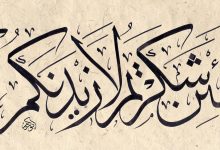 ئن شكرتم لازيدنكم